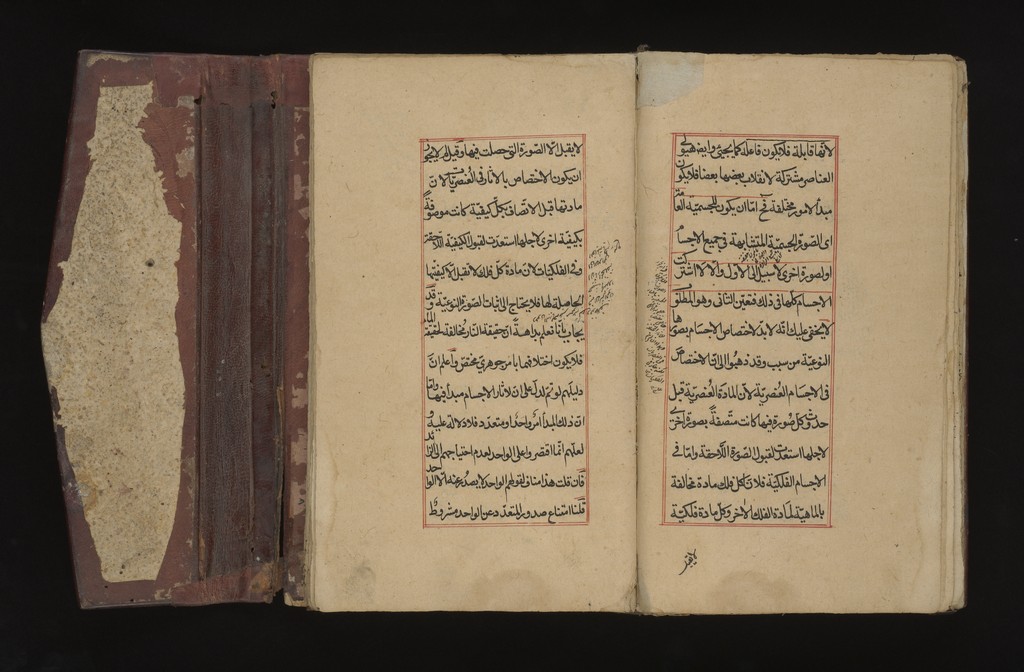 لانها قابلة فلا يكون فاعلة كما يجئ وايضا هيولى
العناصر مشتركة لانقلاب بعضها بعضا فلا يكون
مبدأ لامور مختلفة فح اما ان يكون للجسمية العامة
اى الصورة الجسمية المتشابهة فى جميع الاجسام
او لصورة اخرى لا سبيل الى الاول والا لاشتركت
الاجسام كلها فى ذلك فتعين الثانى وهو المطلوب
لا يخفى عليك انه لا بد لاختصاص الاجسام بصورها
النوعية من سبب وقد ذهبوا الى ان الاختصاص
فى الاجسام العنصرية لان المادة العنصرية قبل
حدوث كل صورة فيها كانت متصفة بصورة اخرى
لاجلها استعدت لقبول الصورة اللاحقة واما فى
الاجسام الفلكية فلان لكل فلك مادة مخالفة
بالماهية لمادة الفلك الاخر وكل مادة فلكية
لا يقبل
لا يقبل الا الصورة التى حصلت فيها وقيل لم لا يجوز
ان يكون الاختصاص بالاثار فى العنصريات لان
مادتها قبل الاتصاف بكل كيفية كانت موصوفة
بكيفية اخرى لاجلها استعدت لقبول الكيفية اللاحقة
وفى الفلكيات لان مادة كل فلك لا تقبل الا كيفيتها
الحاصلة لها فلا يحتاج الى اثبات الصورة النوعية وقد
يجاب بانا نعلم بداهة ان حقيقة النار مخالفة لحقيقة الماء
فلا يكون اختلافهما بامر جوهرى مختص واعلم ان
دليلهم لو تم لدل على ان لاثار الاجسام مبدأ فيها واما
ان ذلك المبدأ امر واحد او متعدد فلا دلالة عليه و
لعلهم انما اقتصروا على الواحد لعدم احتياجهم الى الزائد
فان قلت هذا مناف لقولهم الواحد لا يصدر عنه الا الواحد
قلنا امتناع صدور المتعدد عن الواحد مشروط